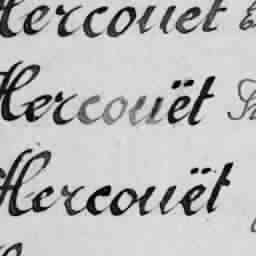 Hercouet
Hercouët
Hercouët